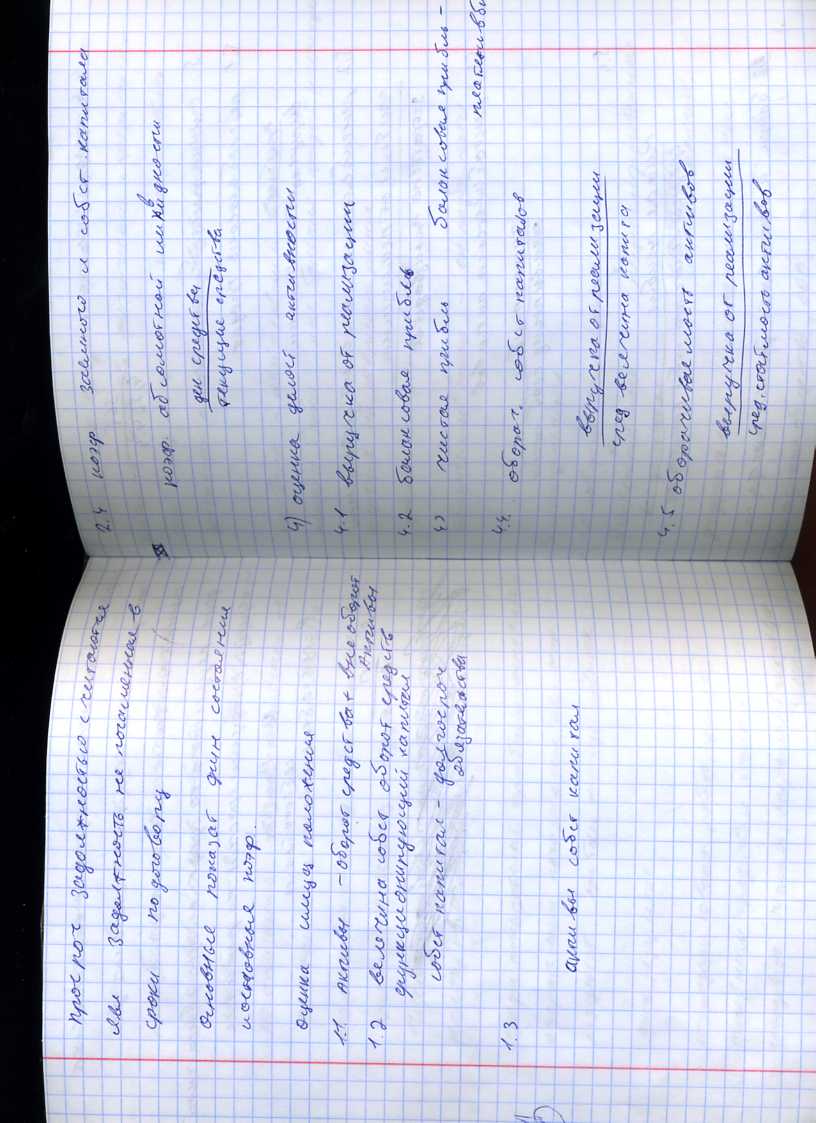 Просроч задолжностью считаются
явл задолжность не погашенная в
сроки по договору
Основные показат фин состояния
и основные коэф.
Оценка имущ положения
1.1 Активы - оборот средства + вне оборот
Активы
1.2 велечина собст оборот средств
функционирующий капитал
собст капитал - долгосроч
обязательства
1.3
активы собст капитал
2.4 коэф заемного и собст. капитала
коэф. абсолютной ликвидности
ден средства
текущие средства
4) оценка делой активности
4.1 выручка от реализации
4.2 балансовая прибль
4) чистая прибль балансовая прибль -
4.4. оборач. собст капиталов
выручка от реализации
сред велечина капита
4.5 оборачиваемость активов
выручка от реализации
сред. стоймость активов